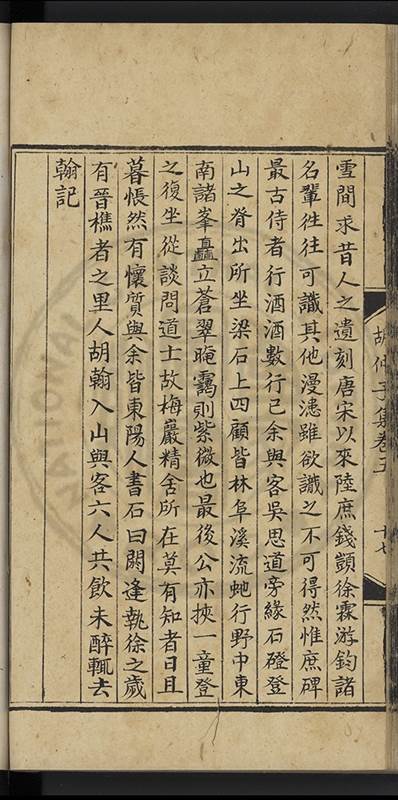 胡仲子集卷五
十七
雪間求昔人之遺刻唐宋以來陸庶錢顗徐霖游鈞諸
名輩徃徃可識其他漫漶雖欲識之不可得然惟庶碑
最古侍者行酒酒數行已余與客吳思道旁緣石磴登
山之脊出所坐梁石上四顧皆林阜溪流虵行野中東
南諸峯矗立蒼翠晻靄則紫微也最後公亦挾一童登
之復坐從談問道士故梅巖精舍所在莫有知者日且
暮悵然有懷質與余皆東陽人書石曰閼逢執徐之歲
有晉樵者之里人胡翰入山與客六人共飲未醉輒去
翰記